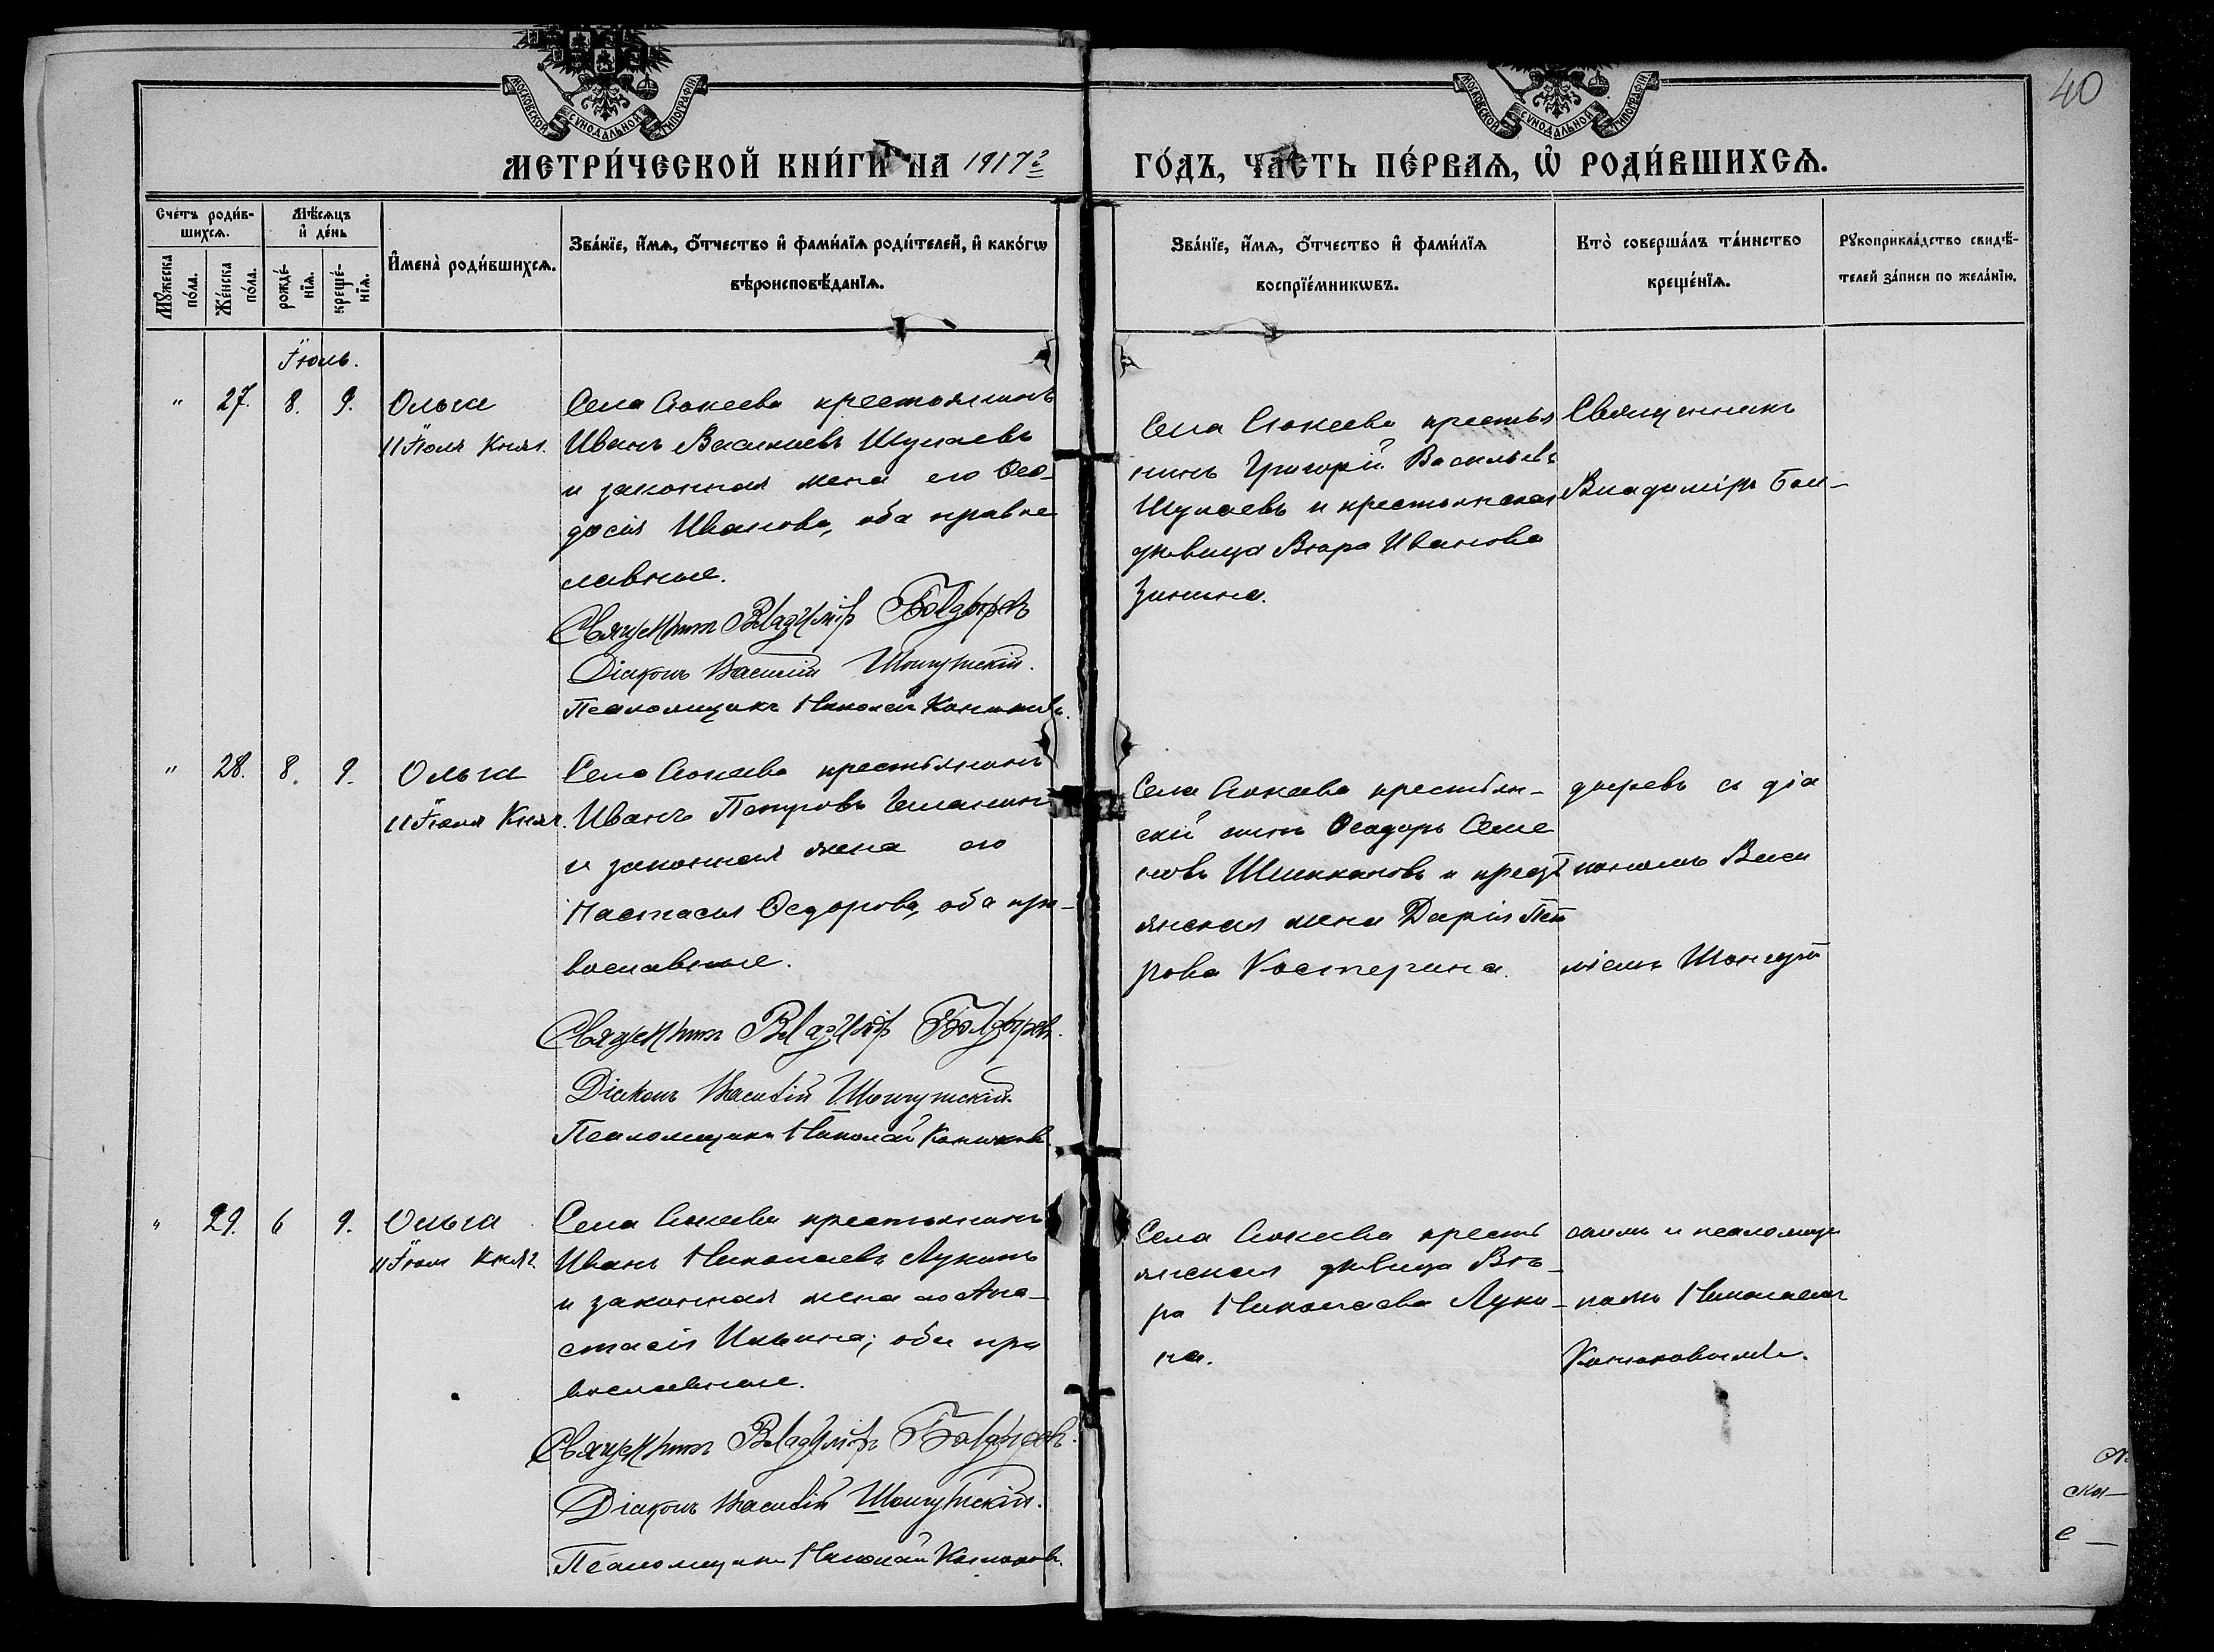 40
МОСКОВСКОЙ СѴНОДАЛЬНОЙ ТИПОГРАФІИ
МОСКОВСКОЙ СѴНОДАЛЬНОЙ ТИПОГРАФІИ
МЕТРИ́ЧЕСКОЙ КНИ́ГИ НА 1917 г
ГО́ДЪ, ЧА́СТЬ ПЕ́РВАЯ, Ѿ РОДИ́ВШИХСѦ.
Сче́тъ роди́в-
шихсѧ.
Мѣ́сѧцъ
и҆ де́нь
Мꙋ́жеска
по́ла.
Же́нска
по́ла.
рожде́-
нїѧ.
креще́-
нїѧ.
И҆мена̀ роди́вшихсѧ.
Зва́нїе, и҆́мѧ, ѻ҆́тчество и҆ фами́лїѧ роди́телей, и҆ како́гѡ
вѣроисповѣ́данїѧ.
Зва́нїе, и҆́мѧ, ѻ҆́тчество и҆ фами́лїѧ
воспрїе́мникѡвъ.
Кто̀ соверша́лъ та́инство
креще́нїѧ.
Рꙋкоприкла́дство свидѣ́-
телей за́писи по жела́нїю.
Іюль.
" 27. 8. 9. Ольга
11 Іюля Княг.
Села Сюкеева крестьянинъ
Иванъ Васильевъ Шулаевъ
и законная жена его Ѳео-
досія Иванова, оба правос
лавные.
Священникъ Владиміръ Болдыревъ
Діаконъ Василій Шонгутскій.
Псаломщикъ Николай Конюховъ.
Села Сюкеева крестья
нинъ Григорій Васильевъ
Шулаевъ и крестьянская
дѣвица Вѣра Иванова
Зинина.
Священникъ
Владиміръ Бол-
" 28. 8. 9. Ольга
11 Іюля Княг.
Села Сюкеева крестьянинъ
Иванъ Петровъ
и законная жена его
Настасія Ѳедорова, оба пра-
вославные.
Священникъ Владиміръ Болдыревъ.
Діаконъ Василій Шонгутскій.
Псаломщикъ Николай Конюховъ.
Села Сюкеева крестьян-
скій сынъ Ѳеодоръ Семе
новъ и крестъ
янская жена Дарія Пет
рова Костерина.
дыревъ съ діа
кономъ Васи
ліемъ Шонгут
" 29. 6 9. Ольга
11 Іюля Княг.
Села Сюкеева крестьянинъ
Иванъ Николаевъ Лукинъ
и законная жена его Ана-
стасія Ильина; оба пра
вославные.
Священникъ Владиміръ Болдыревъ.
Діаконъ Василій Шонгутскій.
Псаломщикъ Николай Конюховъ.
Села Сюкеева кресть
янская дѣвица Вѣ-
ра Николаева Луки-
на.
скимъ и псаломщи
комъ Николаемъ
Конюховымъ.